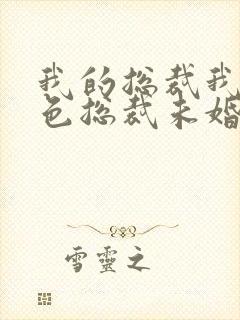 我的总裁我
色总裁未婚
雪灵之